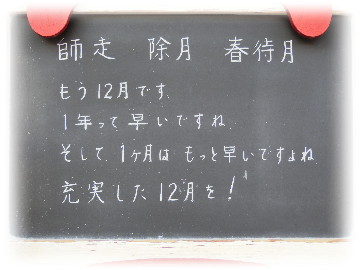 師走 除月 春待月
もう12月です。
1年って早いですね。
そして、1ヶ月はもっと早いですよね
充実した12月を!